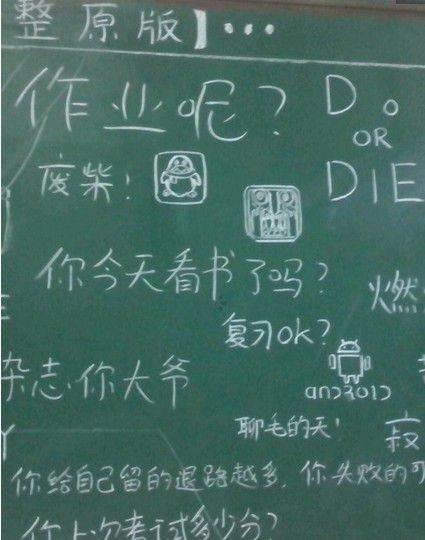 整原版】…
作业呢？ Do
OR
废柴！ DIE
你今天看书了吗？
燃
复习ok？
杂志.你大爷
android
聊毛的天！
寂
你给自己留的退路越多，你失败的可
你上次考试多少分？